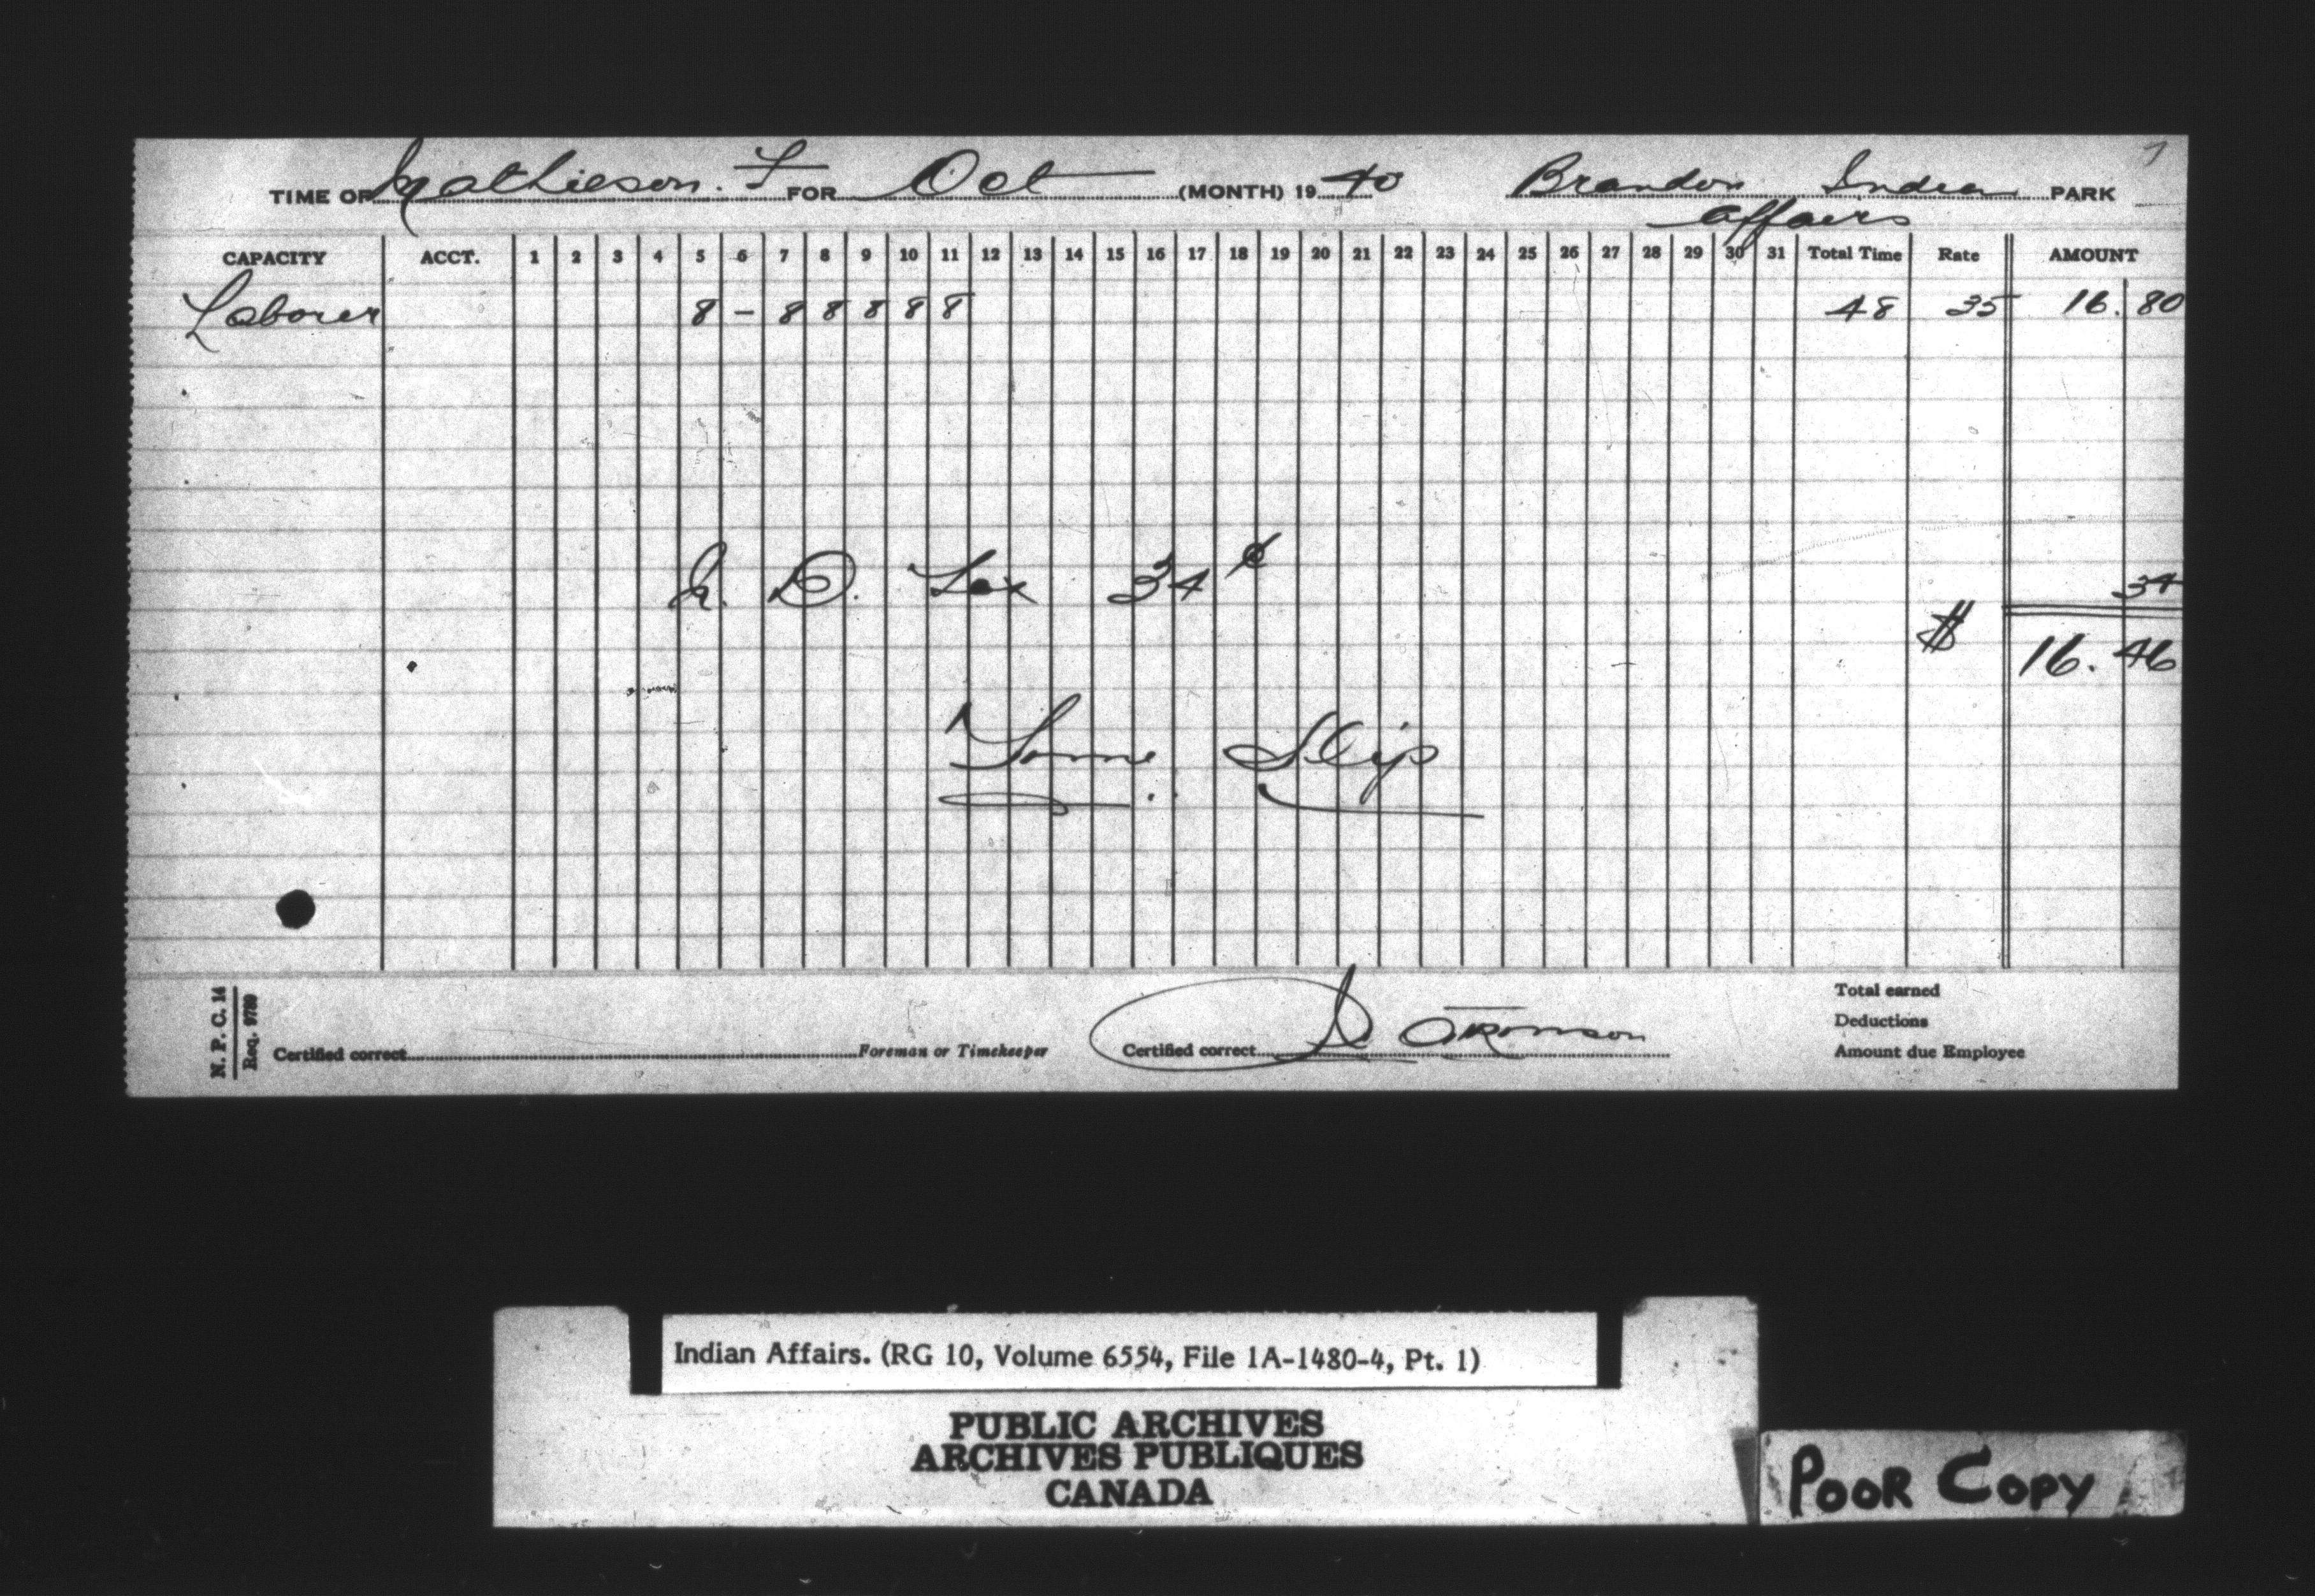 TIME OF Mathieson. F FOR Oct (MONTH) 19 40 Brandon Indian PARK
Affairs
CAPACITY ACCT. 1 2 3 4 5 6 7 8 9 10 11 12 13 14 15 16 17 18 19 20 21 22 23 24 25 26 27 28 29 30 31 Total Time Rate AMOUNT
Laborer 8 - 8 8 8 8 8 48 35 16. 80
N. D. Tax 34¢ 34
$ 16. 46
Time Slip
N. P. C. 14
Req. 9789
Total earned
Deductions
Certified correct Foreman or Timekeeper Certified correct Amount due Employee
Indian Affairs. (RG 10, Volume 6554, File 1A-1480-4, Pt. 1)
PUBLIC ARCHIVES
ARCHIVES PUBLIQUES
CANADA
POOR COPY